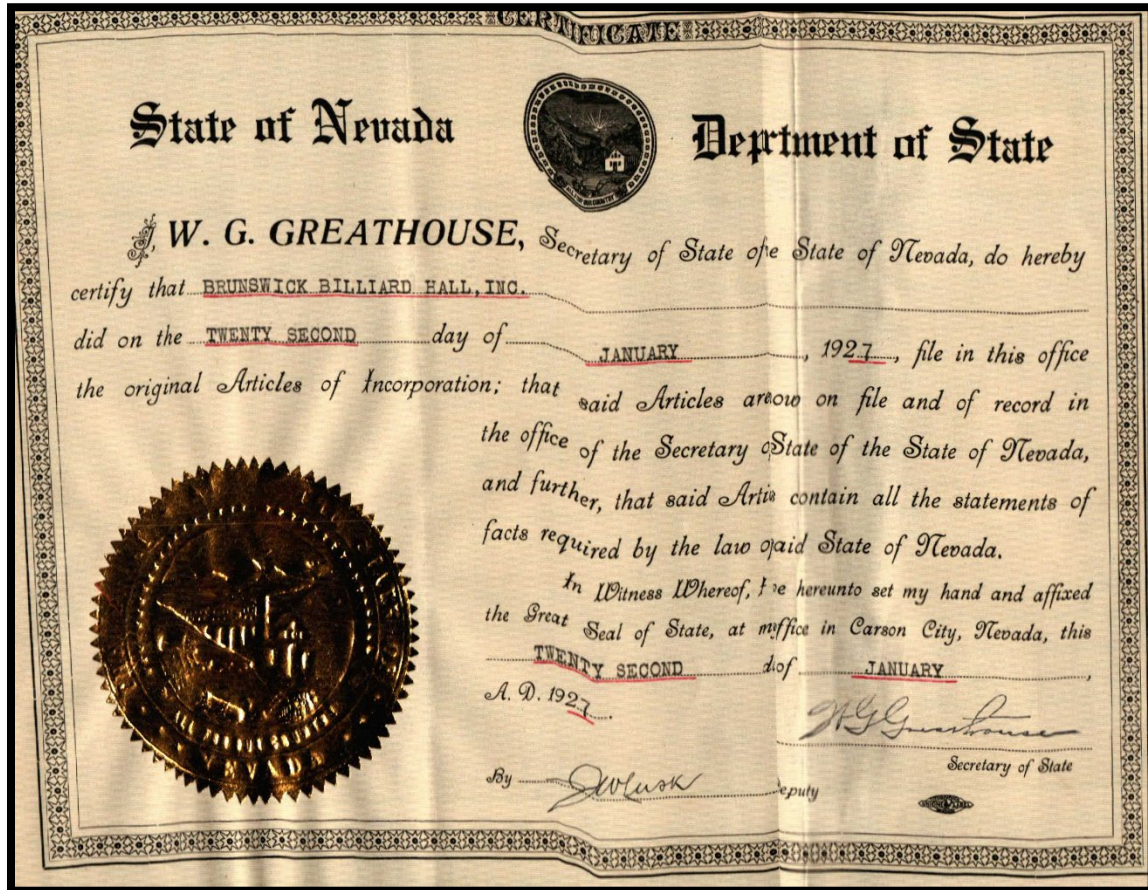 CERTIFICATE
State of Nevada Deprtment of State
I, W. G. GREATHOUSE, Secretary of State ofe State of Nevada, do hereby
certify that BRUNSWICK BILLIARD HALL, INC.
did on the TWENTY SECOND day of JANUARY, 1927, file in this office
the original Articles of Incorporation; that said Articles arnow on file and of record in
the office of the Secretary oState of the State of Nevada,
and further, that said Artis contain all the statements of
facts required by the law oaid State of Nevada.
In Witness Whereof, I ve hereunto set my hand and affixed
the Great Seal of State, at myffice in Carson City, Nevada, this
TWENTY SECOND d of JANUARY,
A. D. 1927.
W G Greathouse
Secretary of State
By Deputy
ALL FOR OUR COUNTRY
NEVADA